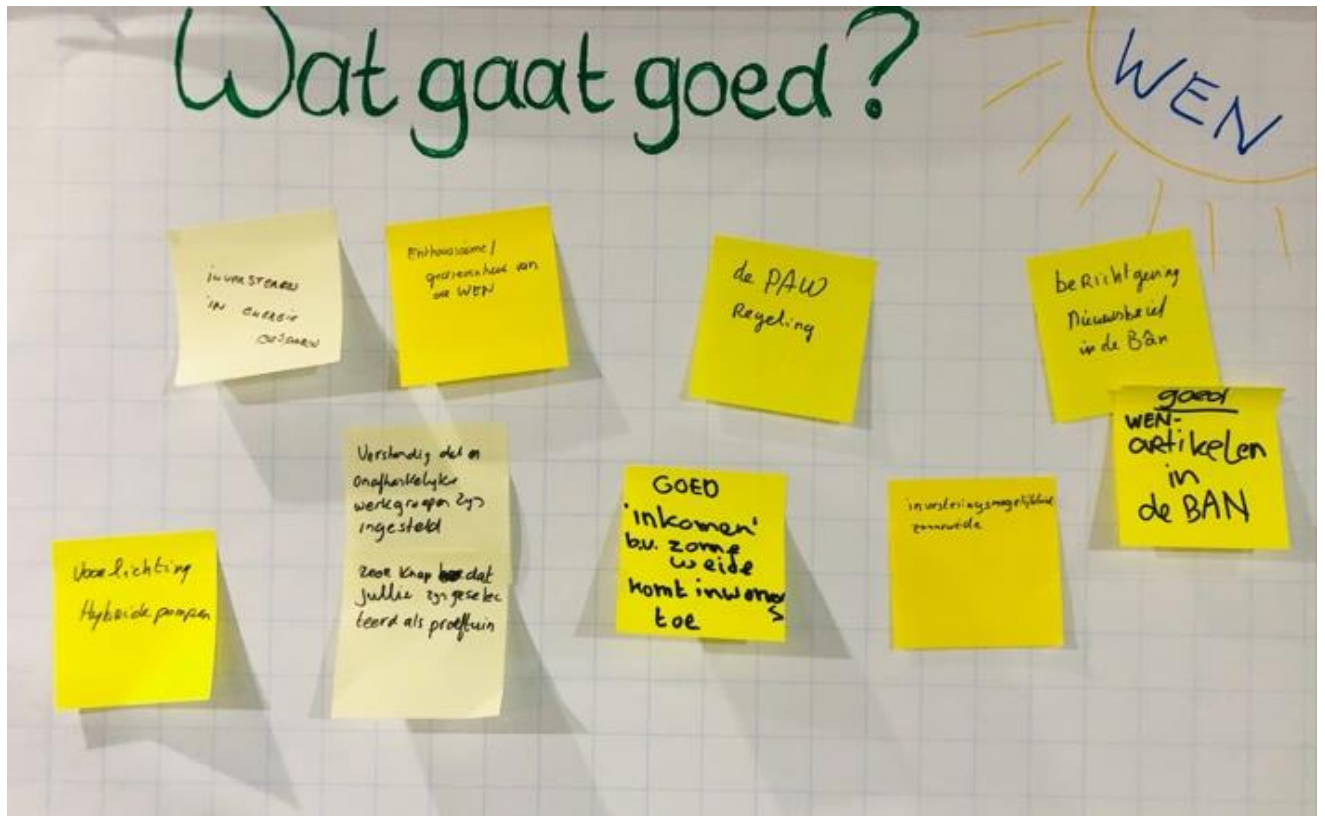 Wat gaat goed?
WEN
investeren
in energie
besparen
Enthousiasme/
gedrevenheid van
de WEN
de PAW
Regeling
beRichtgeving
Nieuwsbrief
in de Bân
goed
WEN-
artikelen
in
de BAN
Verstandig dat er
onafhankelijke
werkgroepen zijn
ingesteld
zeer knap dat
jullie zijn geselec
teerd als proeftuin
GOED
'inkomen'
b.v. zonne
weide
komt inwoners
toe
investeringsmogelijkheid
zonneweide
Voorlichting
Hybride pompen